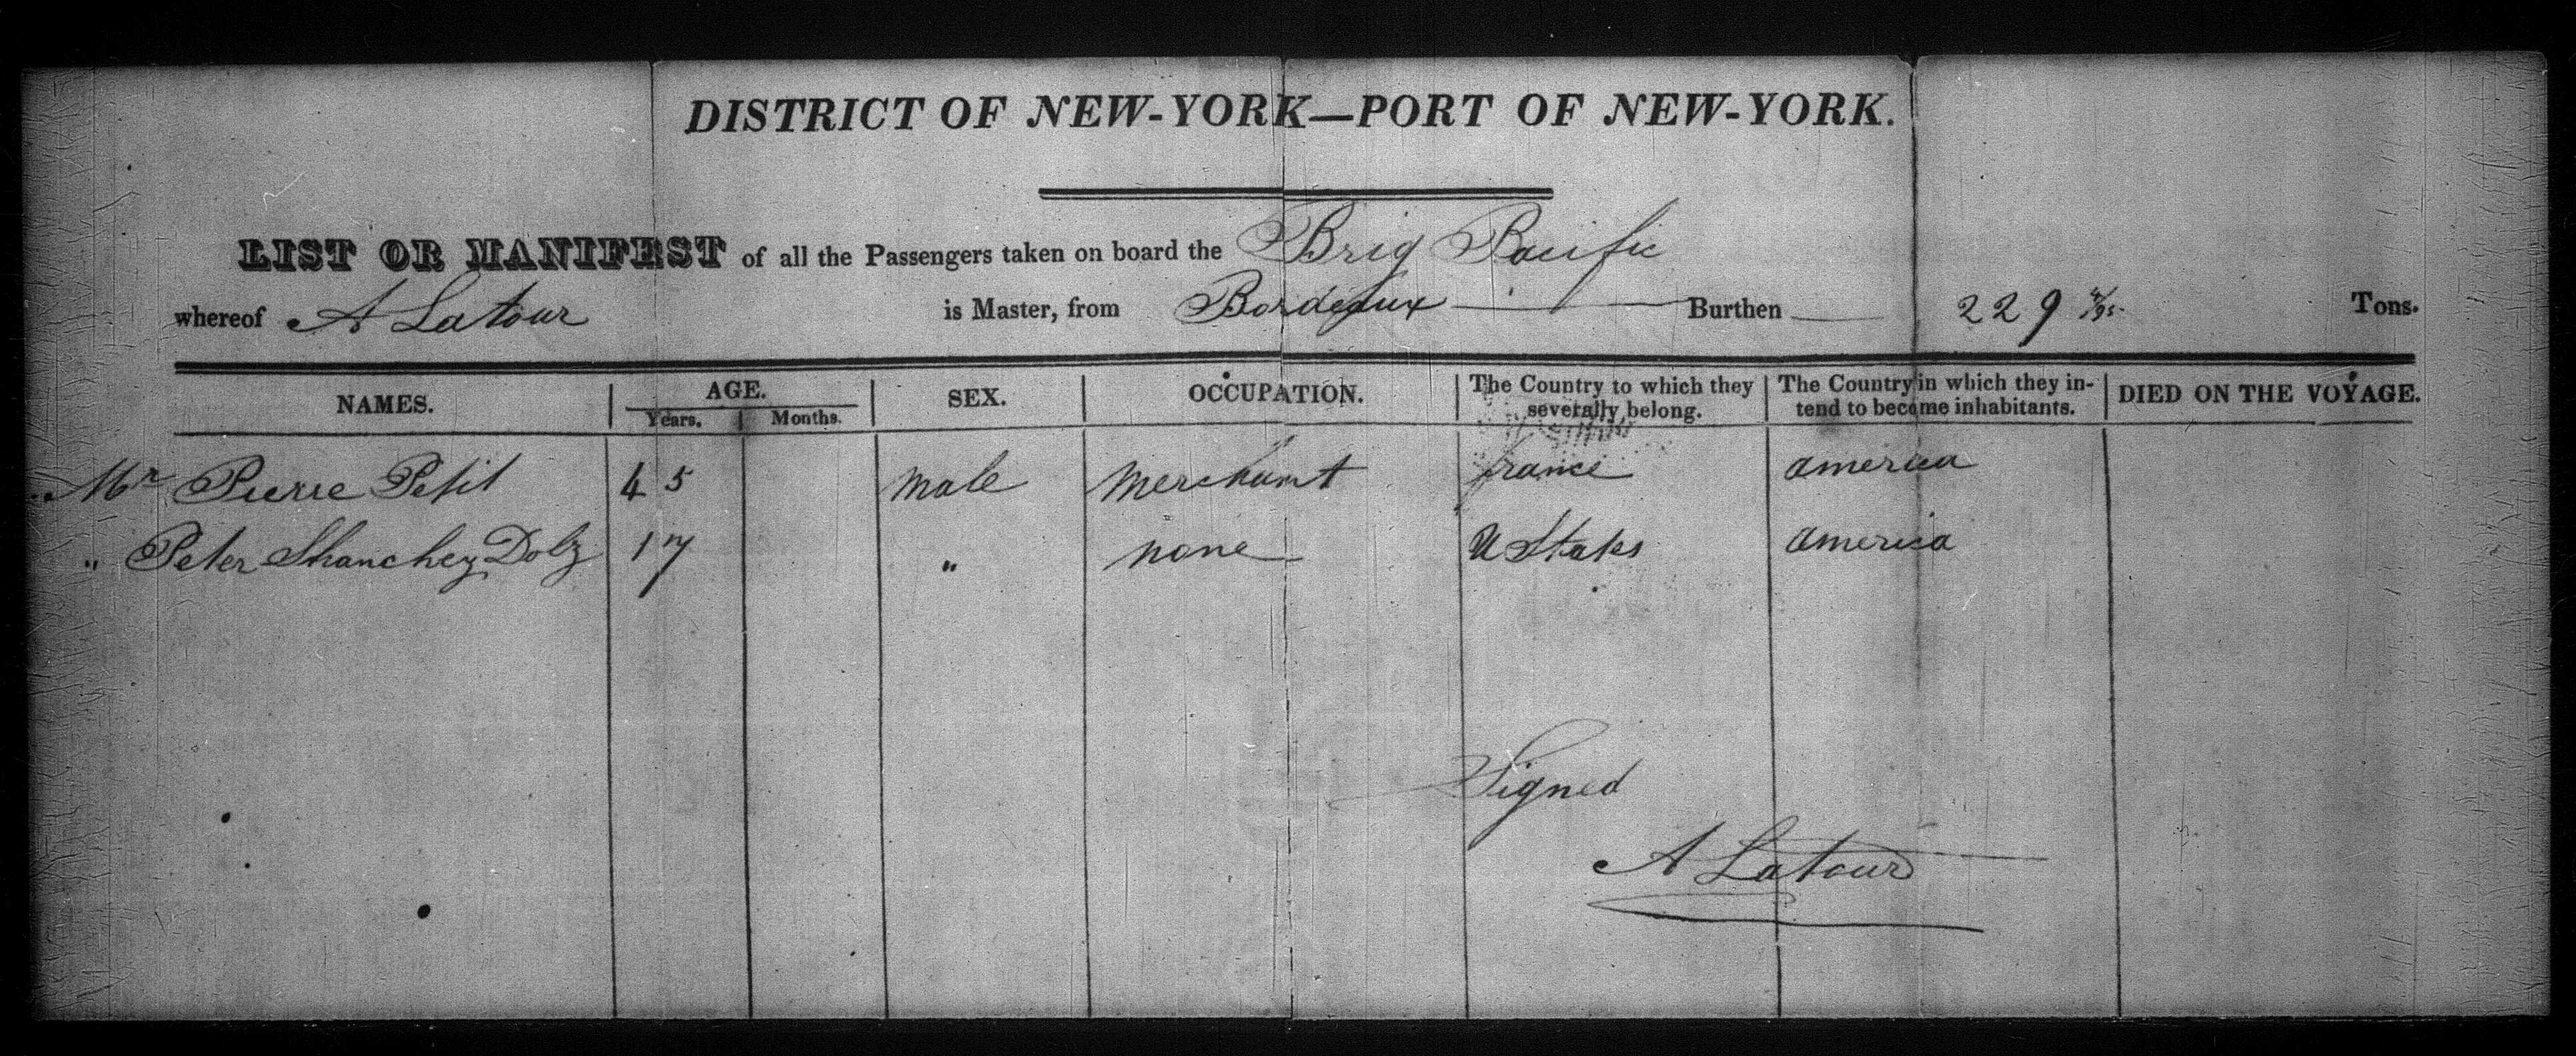 DISTRICT OF NEW-YORK—PORT OF NEW-YORK.
LIST OR MANIFEST of all the Passengers taken on board the Brig Pacific
whereof A Latour is Master, from Bordeaux Burthen 229 Tons.
NAMES. AGE. SEX. OCCUPATION. The Country to which they severally belong. The Country in which they intend to become inhabitants. DIED ON THE VOYAGE.
Years. Months.
Mr Pierre Petit 45 male Merchant france america
" Peter Shanchez Dolz 17 " none U States america
Signed
A Latour